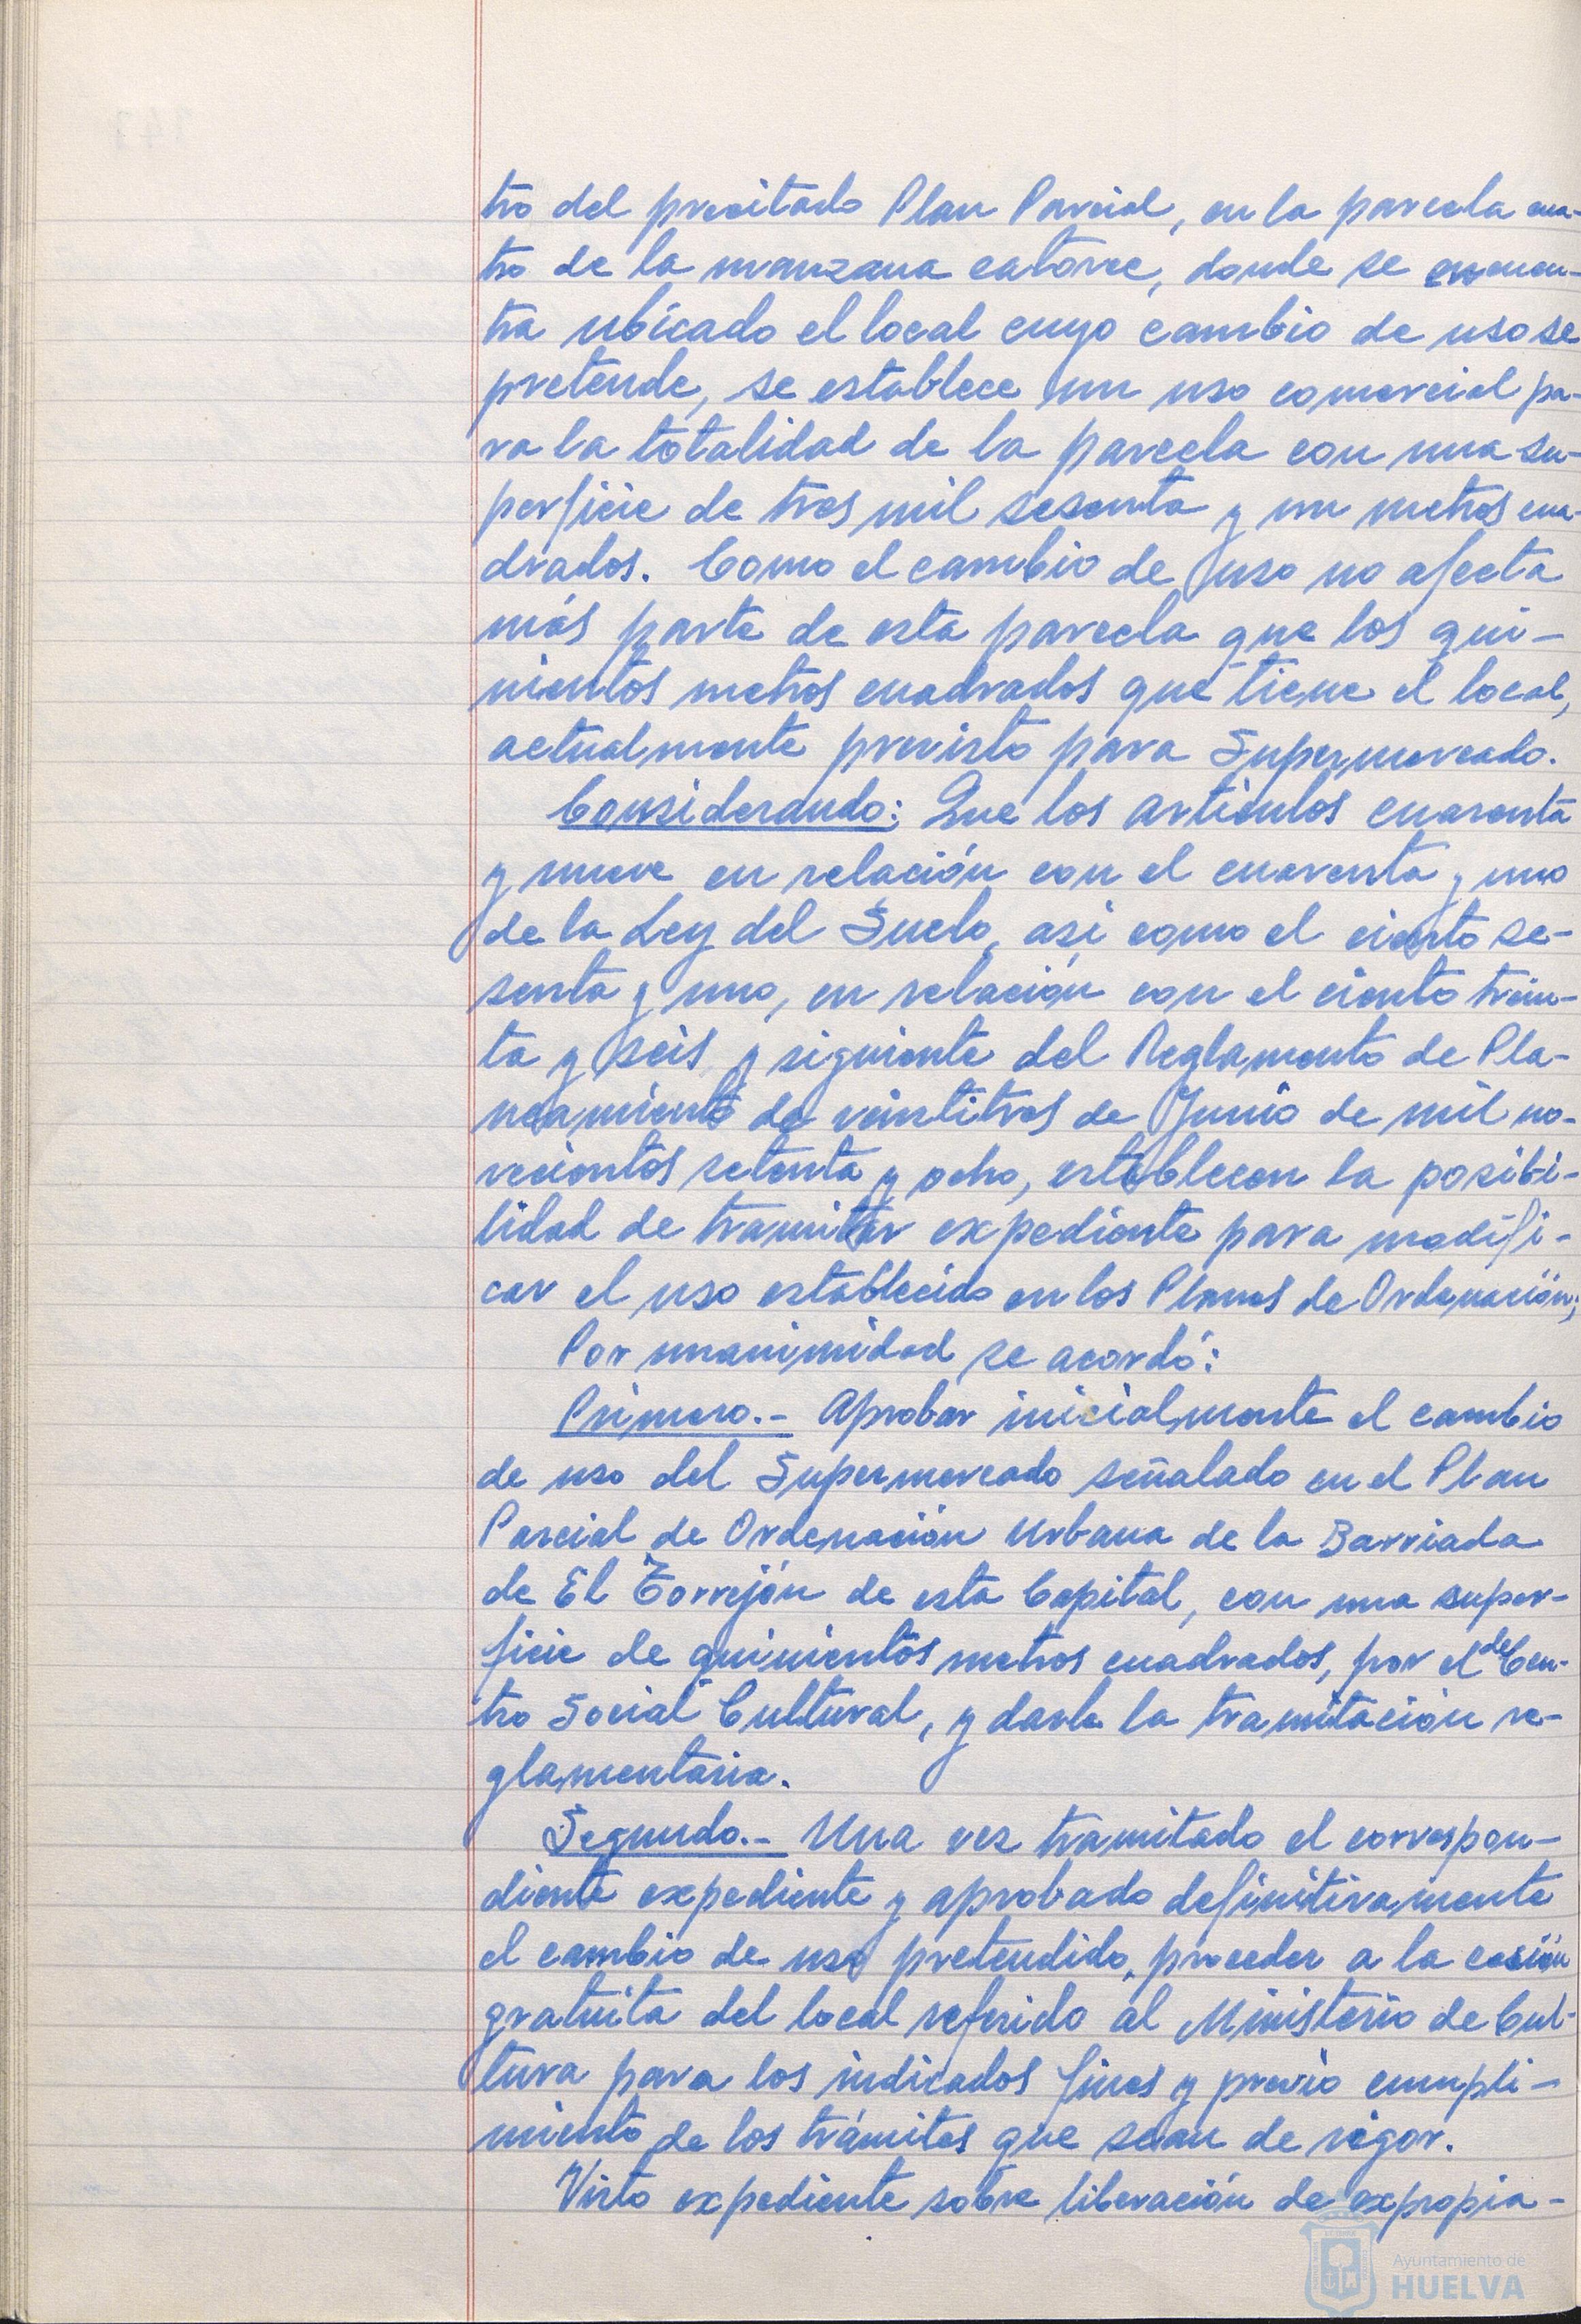 tro del precitado Plan Parcial, en la parcela cua-
tro de la manzana catorce, donde se encuen-
tra ubicado el local cuyo cambio de uso se
pretende, se establece un uso comercial pa-
ra la totalidad de la parcela con una su-
perficie de tres mil sesenta y un metros cua-
drados. Como el cambio de uso no afecta
más parte de esta parcela que los qui-
nientos metros cuadrados que tiene el local,
actualmente previsto para Supermercado.
Considerando: Que los artículos cuarenta
y nueve en relación con el cuarenta y uno
de la Ley del Suelo, asi como el ciento se-
senta y uno, en relación con el ciento trein-
ta y seis y siguiente del Reglamento de Pla-
neamiento de veintitres de Junio de mil no-
vecientos setenta y ocho, establecen la posibi-
lidad de tramitar expediente para modifi-
car el uso establecido en los Planes de Ordenación;
Por unanimidad se acordó:
Primero.- Aprobar inicialmente el cambio
de uso del Supermercado señalado en el Plan
Parcial de Ordenación Urbana de la Barriada
de El Torrejón de esta Capital, con una super-
ficie de quinientos metros cuadrados, por el de Cen-
tro Social Cultural, y darle la tramitación re-
glamentaria.
Segundo.- Una vez tramitado el correspon-
diente expediente y aprobado definitivamente
el cambio de uso pretendido, proceder a la cesión
gratuita del local referido al Ministerio de Cul-
tura para los indicados fines y previo cumpli-
miento de los trámites que sean de rigor.
Visto expediente sobre liberación de expropia-
Ayuntamiento de
HUELVA